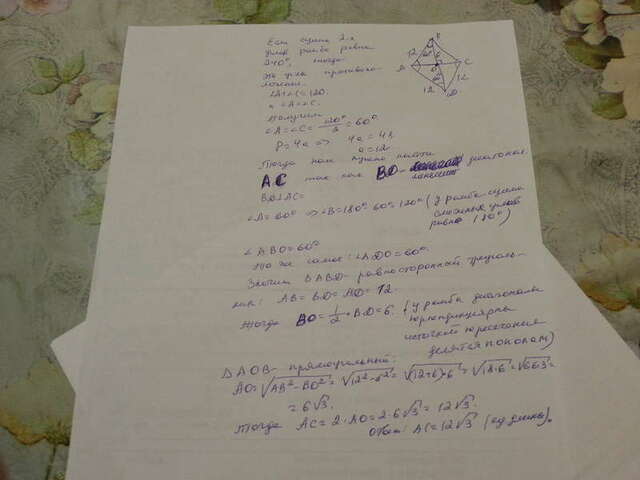 Если сумма 2-х
углов ромба равна
120°, тогда
Эти угла противопо-
ложны.
∠A+∠C=120.
и ∠A=∠C.
Получим
∠A=∠C= 120°/2 = 60°
P=4a => 4a=48
a=12.
Тогда нам нужно найти
AC так как BD - диагональ
BD⊥AC
∠A=60° => ∠B=180°-60°=120° (у ромба сумма
смежных углов
равна 180°)
∠ABO=60°
То же самое: ∠ADO=60°.
Значит △ABD- равносторонний треуголь-
ник: AB=BD=AD=12.
Тогда BO=1/2·BD=6. (у ромба диагонали
перпендикулярны
и точкой пересечения
делятся пополам)
△AOB- прямоугольный:
AO=√AB²-BO²=√12²-6²=√(12+6)·6=√18·6=√6·6·3=
=6√3.
Тогда AC=2·AO=2·6√3=12√3.
Ответ: AC=12√3 (ед. длины).
B
12
6
A
C
O
12
12
D